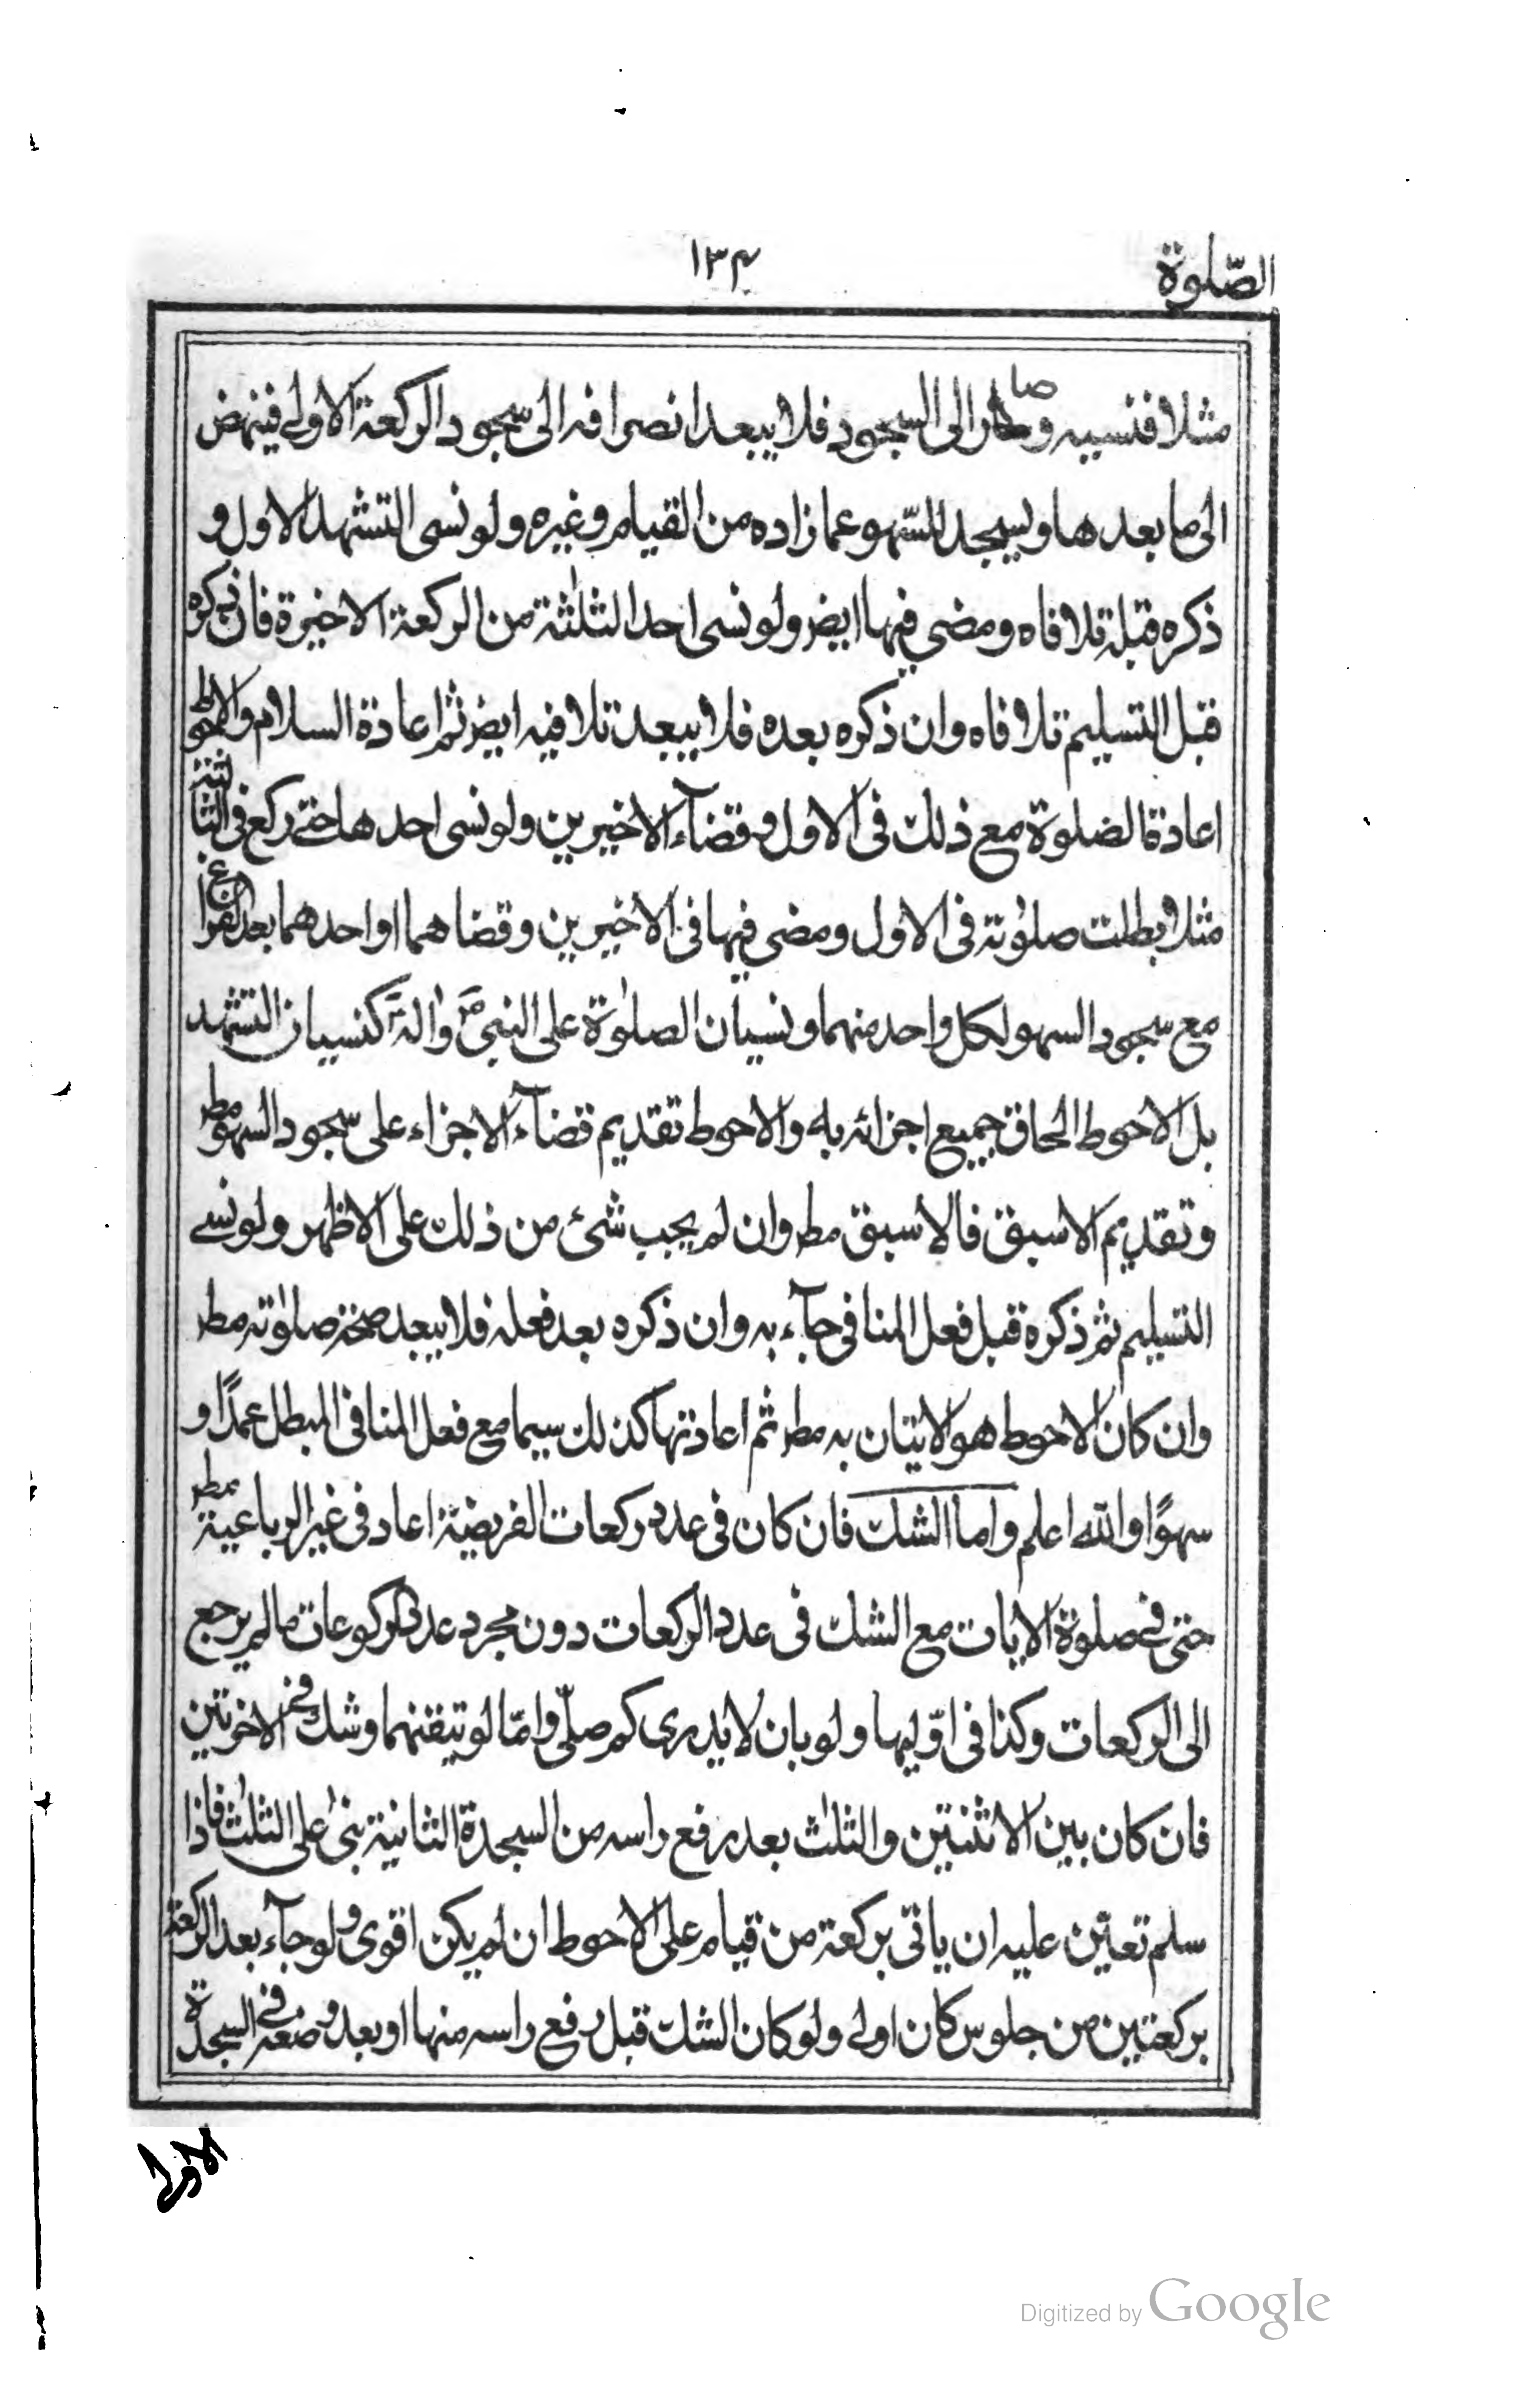 الصّلوة
۱۳۴
مثلا فنسيه وصار الى السجود فلا يبعد انصرافه الى سجود الركعة الاولى فينهض
الى ما بعدها ويسجد للسّهو عما زاده من القيام وغيره ولو نسى التشهد الاول و
ذكره قبله تلافاه ومضى فيها ايضر ولو نسى احد الثلثة من الركعة الاخيرة فان ذكره
قبل التسليم تلافاه وان ذكره بعده فلا يبعد تلافيه ايضر ثم اعادة السلام والاحوط
اعادة الصلوة مع ذلك فى الاول وقضآء الاخيرين ولو نسى احدها حتى ركع فى الثالثة
مثلا بطلت صلوته فى الاول ومضى فيها فى الاخيرين وقضاهما او احدهما بعد الفراغ
مع سجود السهو لكل واحد منهما ونسيان الصلوة على النبىّ ص واله كنسيان التشهد
بل الاحوط الحاق جميع اجزائه به والاحوط تقديم قضآء الاجزاء على سجود السهو مطر
وتقديم الاسبق فالاسبق مطر وان لم يجب شئ من ذلك على الاظهر ولو نسے
التسليم ثم ذكره قبل فعل المنافى جآء به وان ذكره بعد فعله فلا يبعد صحة صلوته مطر
وان كان الاحوط هو الاتيان به مطر ثم اعادتها كذلك سيما مع فعل المنافى المبطل عمدًا و
سهوًا والله اعلم واما الشك فان كان فى عدد ركعات الفريضة اعاد فى غير الرباعية مطر
حتى فى صلوة الايات مع الشك فى عدد الركعات دون مجرد عدد الركوعات ما لم يرجع
الى الركعات وكذا فى اوّليها ولو بان لا يدرى كم صلّى وامّا لو تيقنهما وشك فى الاخرتين
فان كان بين الاثنتين والثلث بعد رفع راسه من السجدة الثانية بنى على الثلث فاذا
سلم تعيّن عليه ان ياتى بركعة من قيام على الاحوط ان لم يكن اقوى ولو جآء بعد الركعة
بركعتين من جلوس كان اولى ولو كان الشك قبل رفع راسه منها او بعد وضعه فى السجدة
الاولى
Digitized by Google